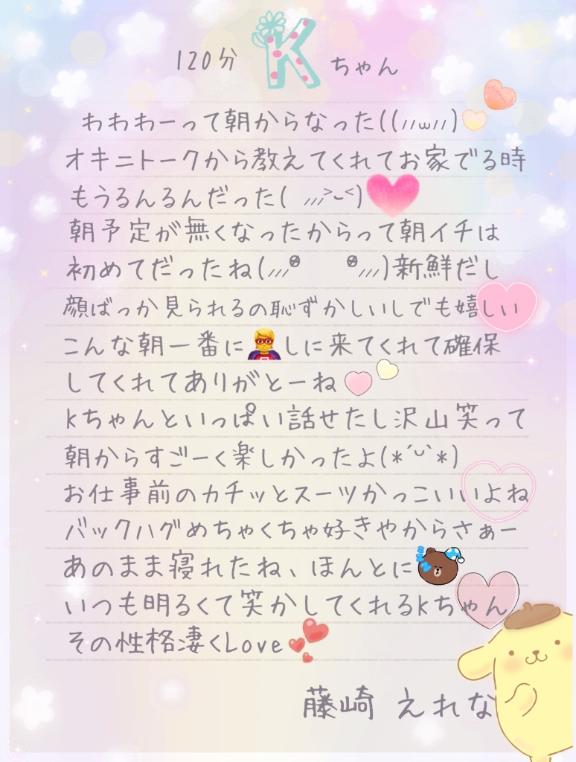 120分 K ちゃん
わわわーって朝からなった((⁄⁄ω⁄⁄)
オキニトークから教えてくれてお家でる時
もうるんるんだった( ⁄⁄⁄>⌣<)
朝予定が無くなったからって朝イチは
初めてだったね(⁄⁄⁄ ⁄⁄⁄)新鮮だし
顔ばっか見られるの恥ずかしいしでも嬉しい
こんな朝一番に🦸しに来てくれて確保
してくれてありがとーね
Kちゃんといっぱい話せたし沢山笑って
朝からすごーく楽しかったよ(*´ᵕ`*)
お仕事前のカチッとスーツかっこいいよね
バックハグめちゃくちゃ好きやからさぁー
あのまま寝れたね、ほんとに
いつも明るくて笑かしてくれるKちゃん
その性格凄くLove
藤崎 えれな